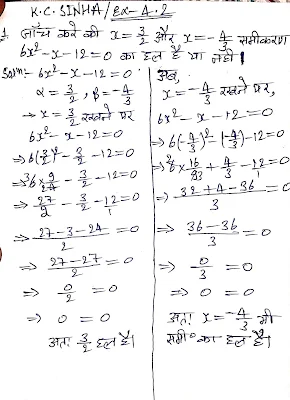 K.C. SINHA / Ex-4.2
1 जाँच करें की x = 3/2 और x = -4/3 समीकरण
6x² - x - 12 = 0 का हल है या नहीं।
Solⁿ:- 6x² - x - 12 = 0
α = 3/2, β = -4/3
→ x = 3/2 रखने पर
6x² - x - 12 = 0
⇒ 6(3/2)² - 3/2 - 12 = 0
⇒ 6 × 9/4 - 3/2 - 12 = 0
⇒ 27/2 - 3/2 - 12/1 = 0
⇒ 27 - 3 - 24 / 2 = 0
⇒ 27 - 27 / 2 = 0
⇒ 0/2 = 0
⇒ 0 = 0
अतः 3/2 हल है।
अब,
x = -4/3 रखने पर,
6x² - x - 12 = 0
⇒ 6(-4/3)² - (-4/3) - 12 = 0
⇒ 6 × 16/9 + 4/3 - 12/1 = 0
⇒ 32 + 4 - 36 / 3 = 0
⇒ 36 - 36 / 3 = 0
⇒ 0/3 = 0
⇒ 0 = 0
अतः x = -4/3 भी
समी० का हल है।